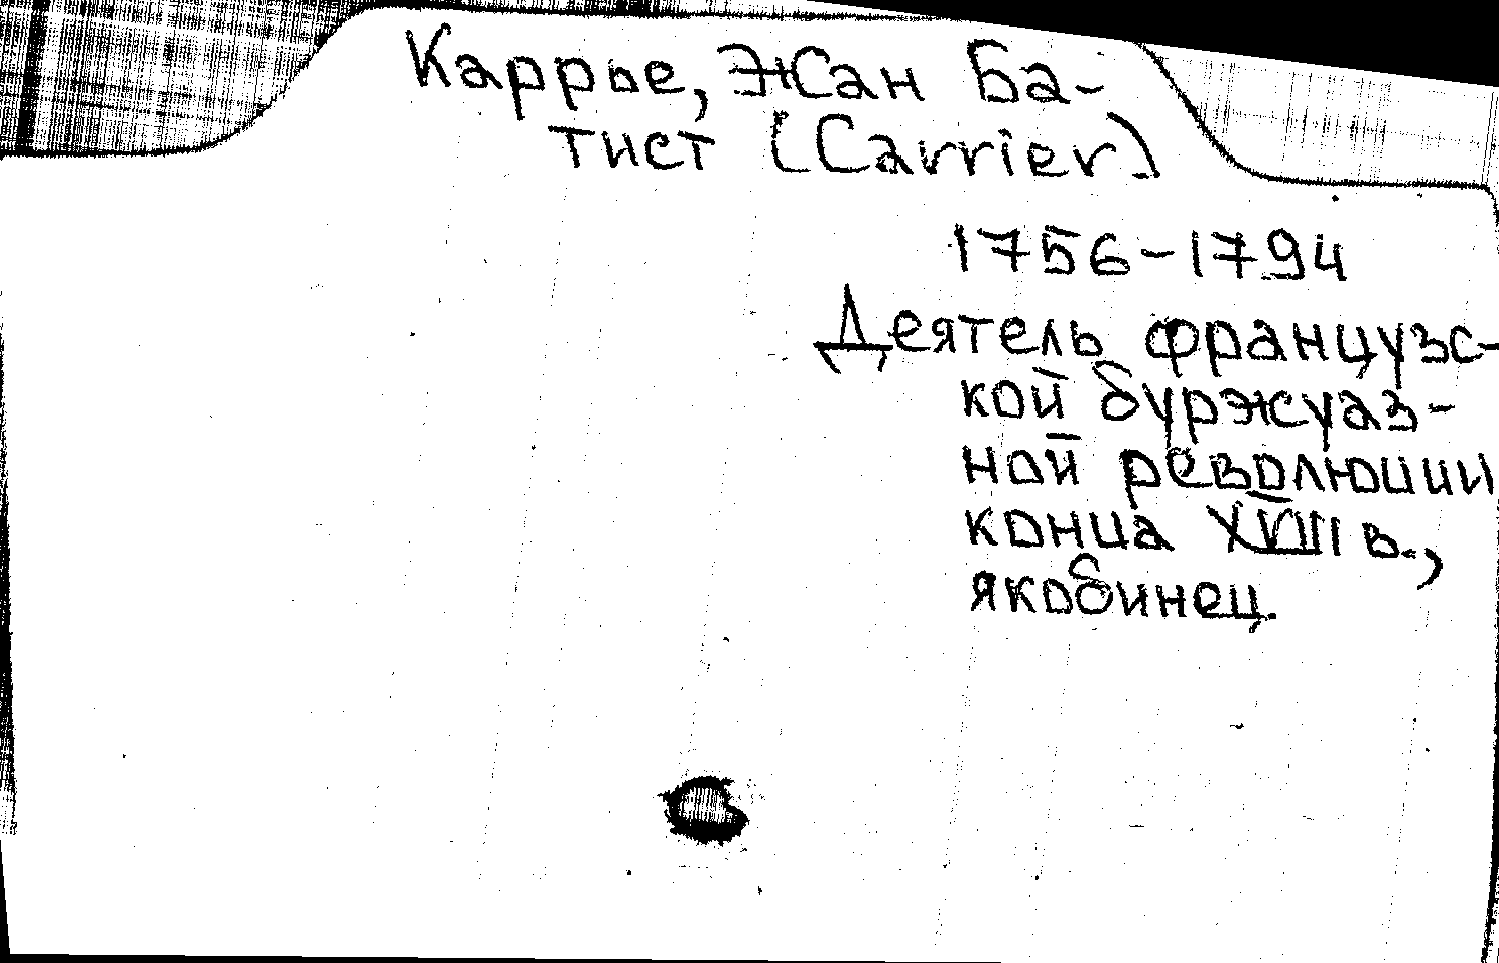 Каррье, Жан Ба-
тист (Carrier)
1756-1794
Деятель французс-
кой буржуаз-
ной революции
конца XVIII в.,
якобинец.